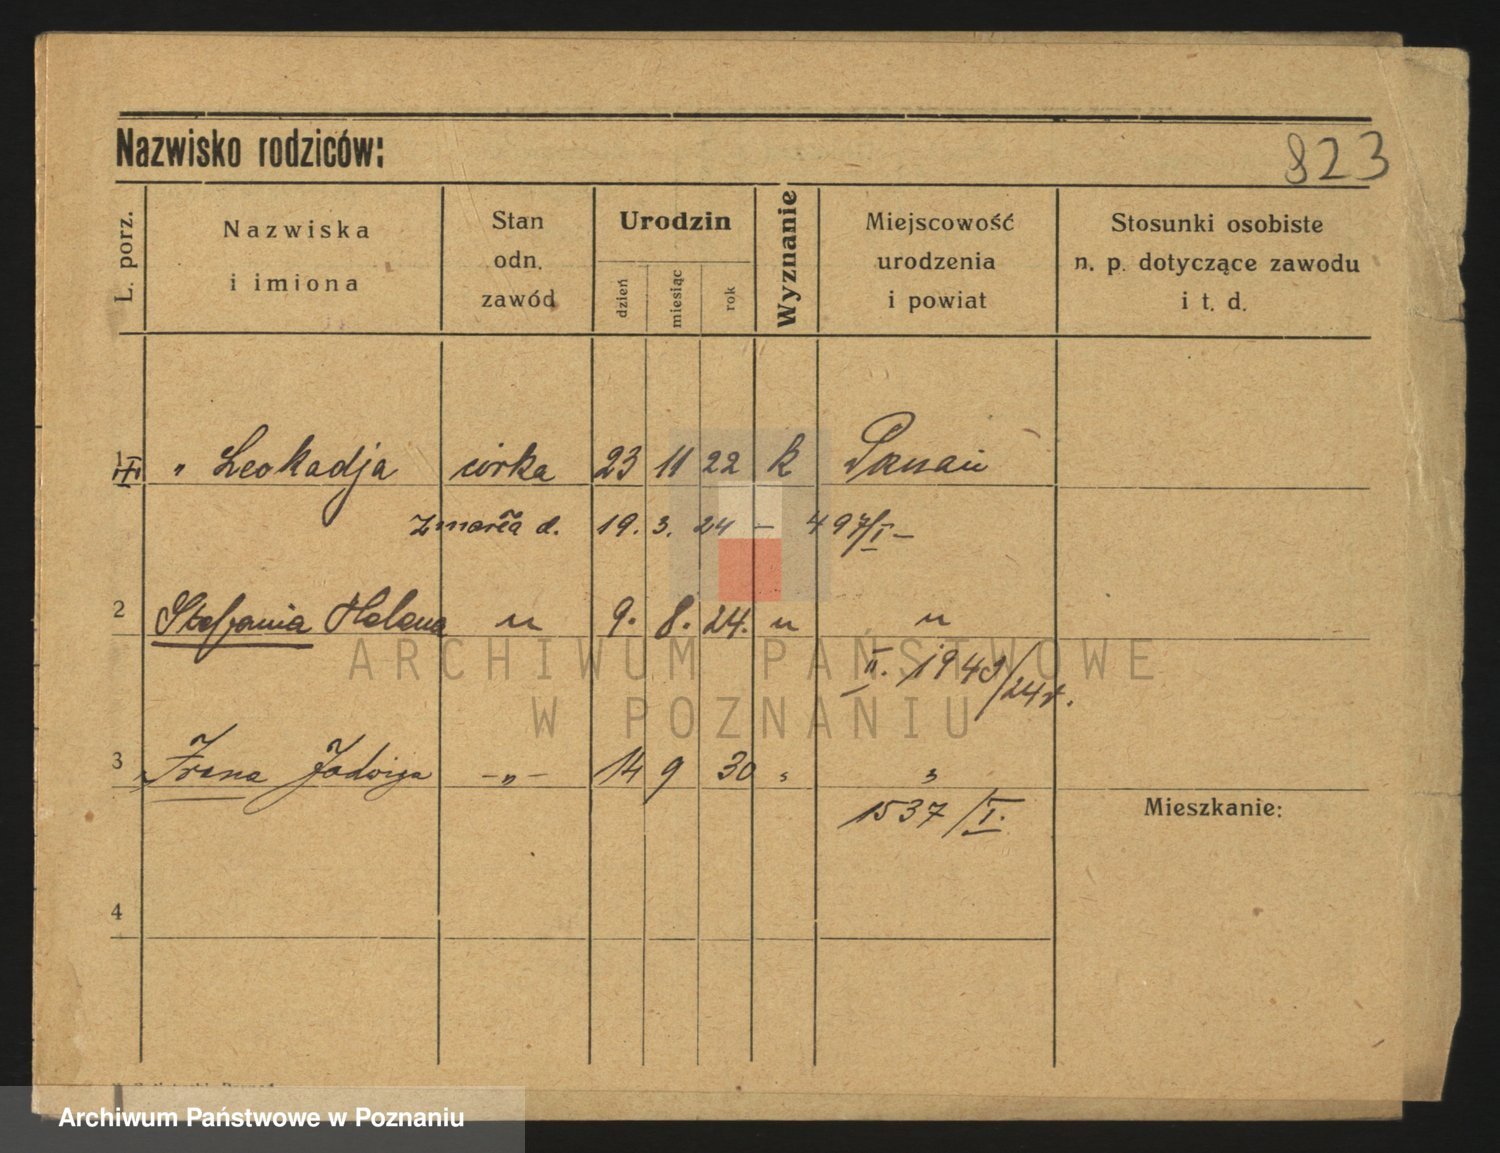 Nazwisko rodziców:
823
L. porz.
Nazwiska
i imiona
Stan
odn.
zawód
Urodzin
dzień
miesiąc
rok
Wyznanie
Miejscowość
urodzenia
i powiat
Stosunki osobiste
n. p. dotyczące zawodu
i t. d.
1 " Leokadja córka 23 11 22 k Poznań
zmarła d. 19. 3. 24 – 497/I –
2 Stefania Helena " 9. 8. 24. " "
II. 1949/24 r.
3 Irena Jadwiga –"– 14 9 30 " "
1537/I.
Mieszkanie:
4
ARCHIWUM PAŃSTWOWE
W POZNANIU
Archiwum Państwowe w Poznaniu